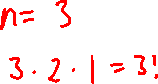 n = 3
3 · 2 · 1 = 3!